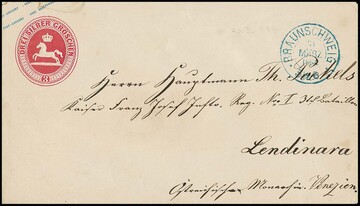 DREI SILBER GROSCHEN
3
BRAUNSCHWEIG
Herrn Hauptmann Th.
Kaiser Franz Josef Inftr. Reg. No I 3tes Bataillon
Lendinara
Östreichische Monarchie. Venezien.